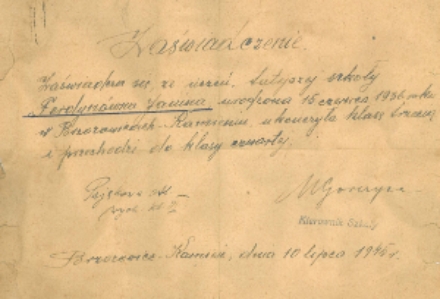 Zaświadczenie.
Zaświadcza się, że uczeń. tutejszej szkoły
Ferdynówna Janina, urodzona 15 czerwca 1936 roku
w Brzozowicach-Kamieniu ukończyła klasę trzecią
i przechodzi do klasy czwartej.
Kierownik Szkoły
Brzozowice-Kamień, dnia 10 lipca 1945 r.